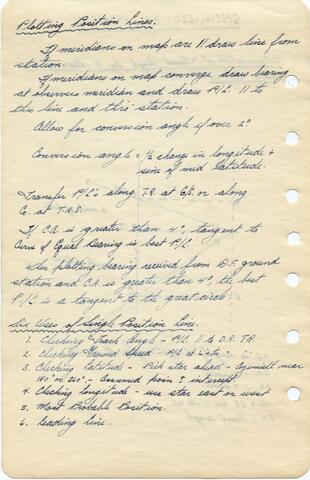 Plotting Position Lines.
If meridians on map are // draw line from
station.
If meridians on map converge draw bearing
at observers meridian and draw P/L // to
this line and thro' station.
Allow for conversion angle if over 2°
Conversion angle = ½ change in longitude x
sine of mid latitude.
Transfer P/L's along T.R. at G/S. or along
Co. at T.A.S.
If C.A. is greater than 4°, tangent to
Curve of Equal Bearing is best P/L.
When plotting bearing received from D.F. ground
station and C.A. is greater than 4°, the best
P/L is a tangent to the great circle.
Six Uses of Single Position Line.
1. Checking Track Angle - P/L // to D.R. T.R.
2. Checking Ground Speed P/L at
3. Checking Latitude - Pick star ahead - Azimuth near
180° or 360° - Assumed posn & intercept.
4. Checking longitude - use star east or west
5. Most Probable Position.
6. leading line.